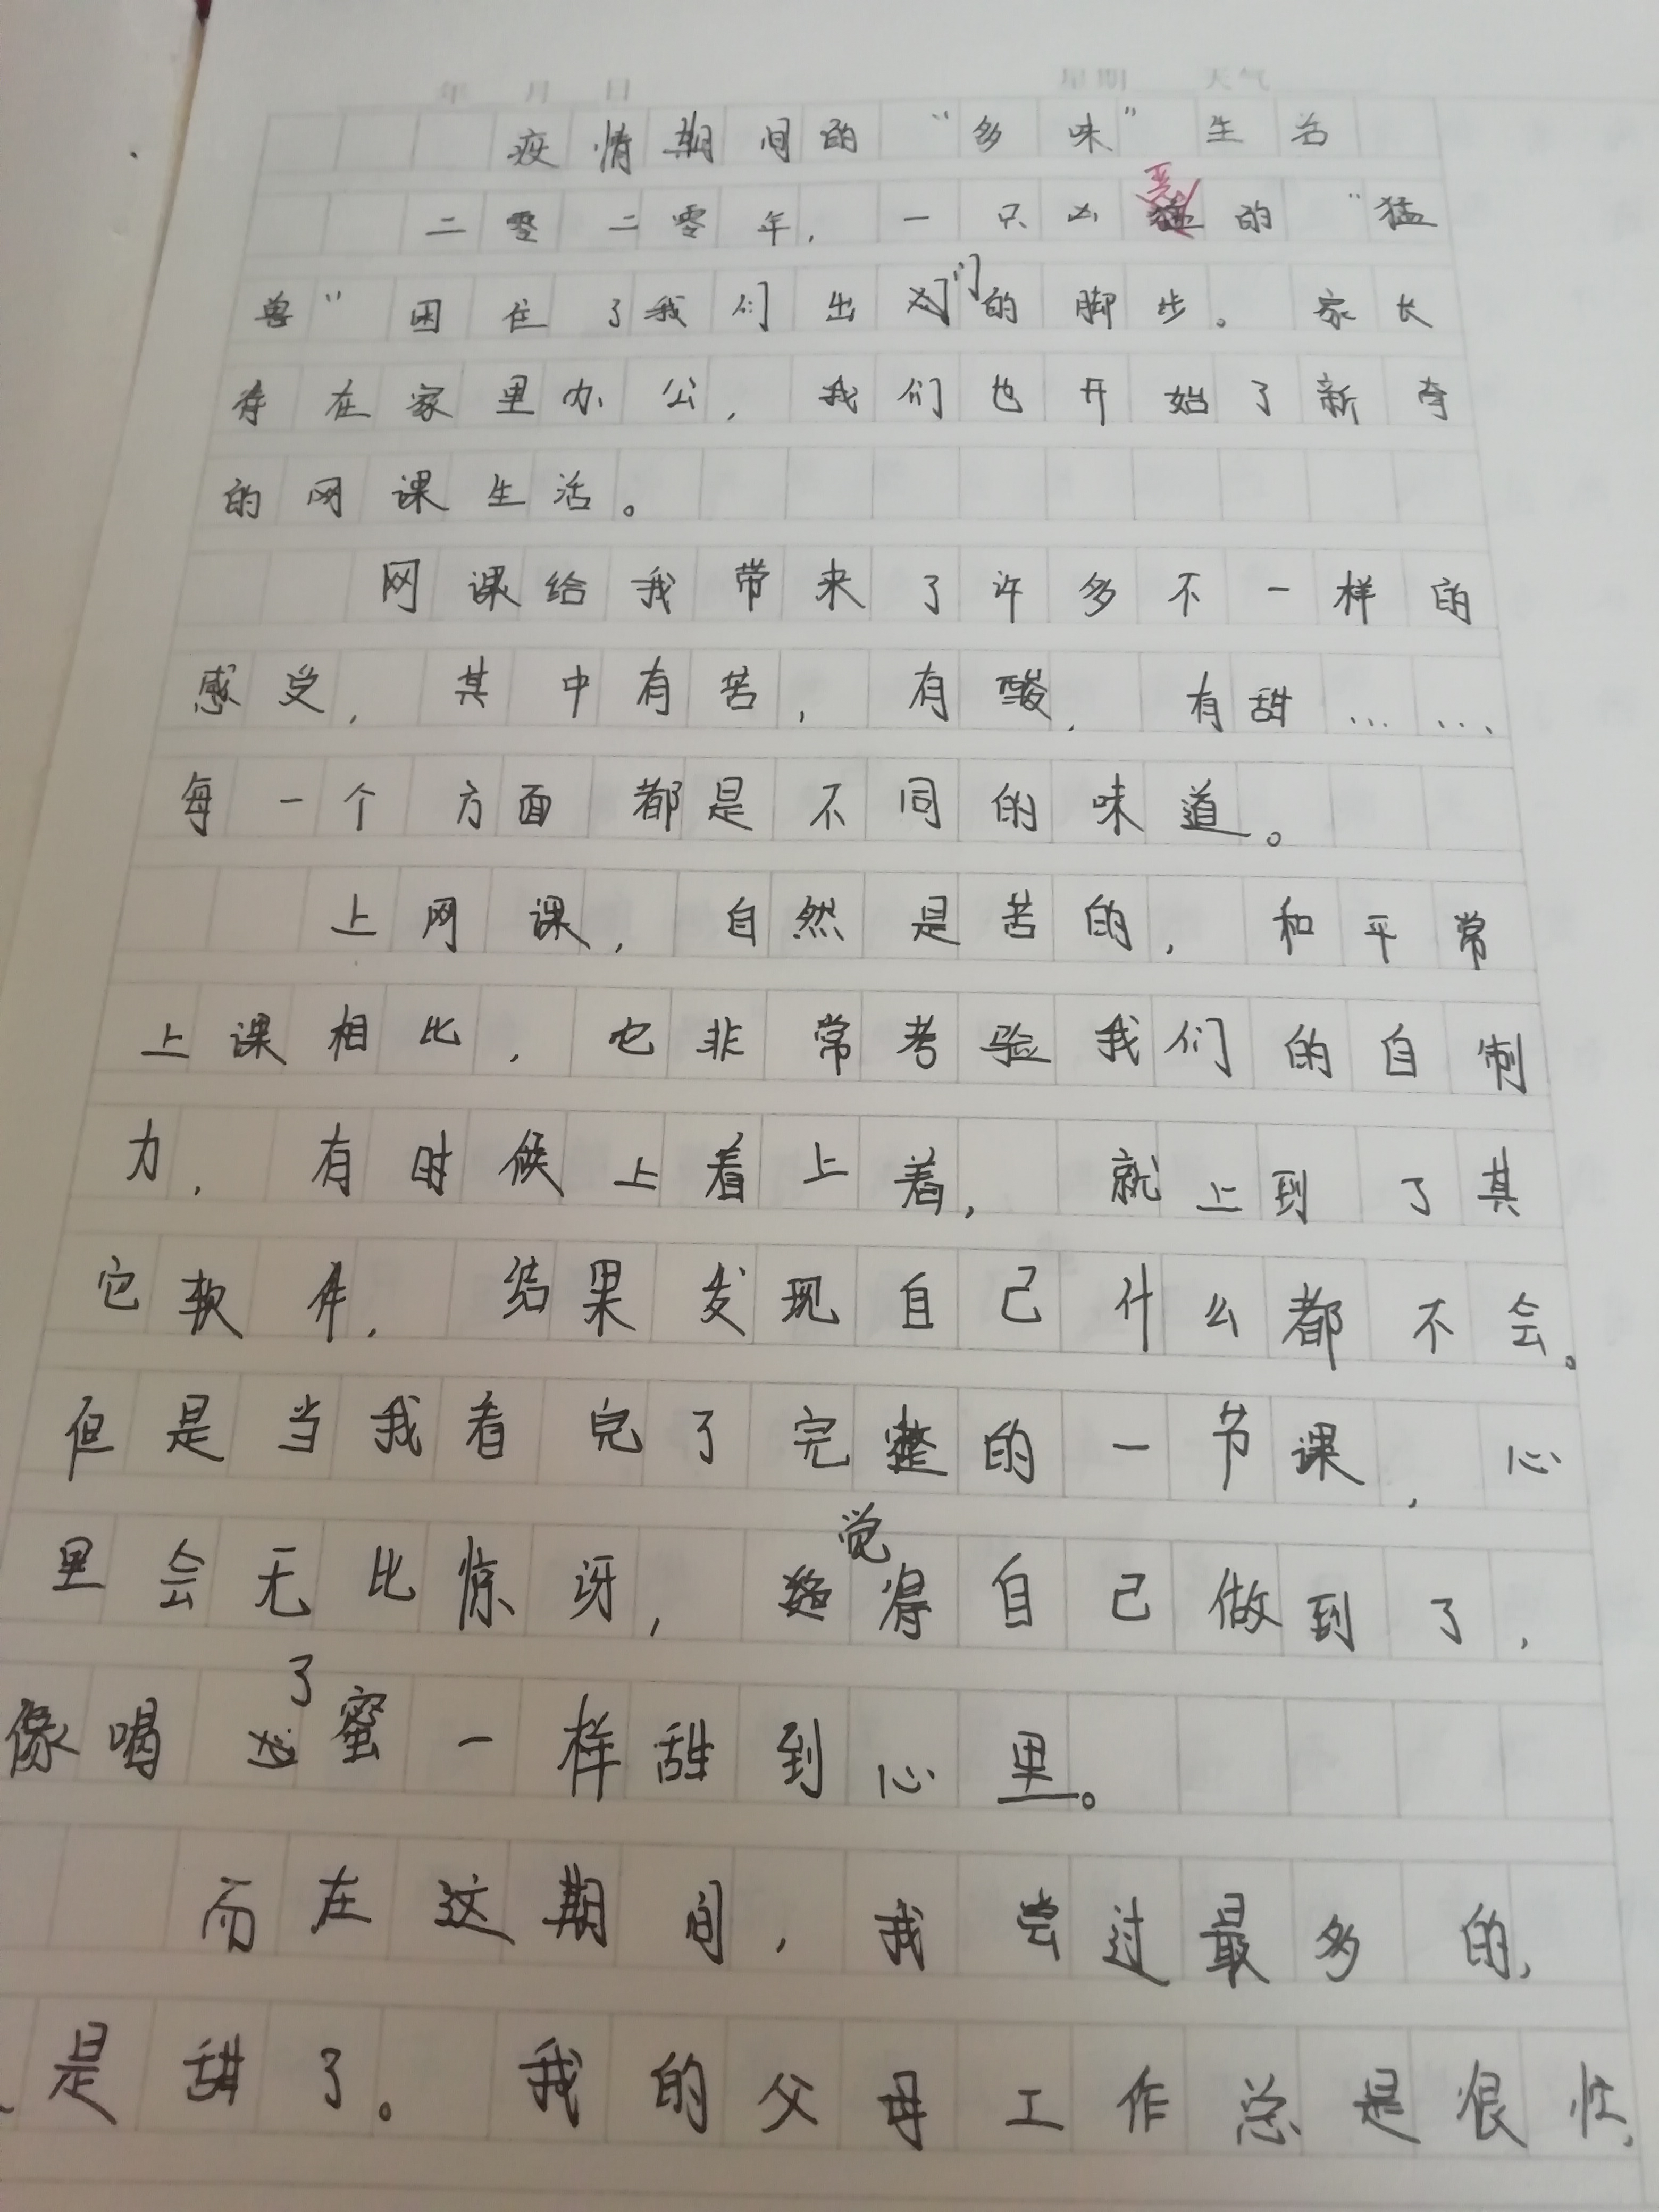 年 月 日 星期 天气
疫情期间的“多味”生活
二零二零年，一只凶恶的“猛
兽”困住了我们出门的脚步。家长
存在家里办公，我们也开始了新奇
的网课生活。
网课给我带来了许多不一样的
感受，其中有苦，有酸，有甜……
每一个方面都是不同的味道。
上网课，自然是苦的，和平常
上课相比，它非常考验我们的自制
力，有时候上着上着，就上到了其
它软件，结果发现自己什么都不会。
但是当我看完了完整的一节课，心
里会无比惊讶，觉得自己做到了，
像喝了蜜一样甜到心里。
而在这期间，我尝过最多的，
是甜了。我的父母工作总是很忙，